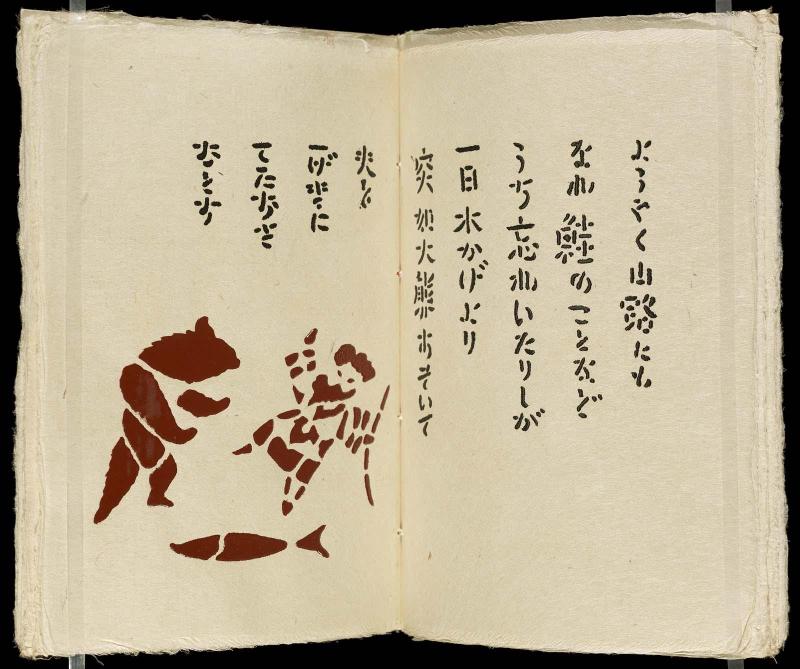 ようやく山路にも
なれ鮭のことなど
うち忘れいたりしが
一日木かげより
突如大熊おそいて
夫を
一げきに
てたおさ
むとす